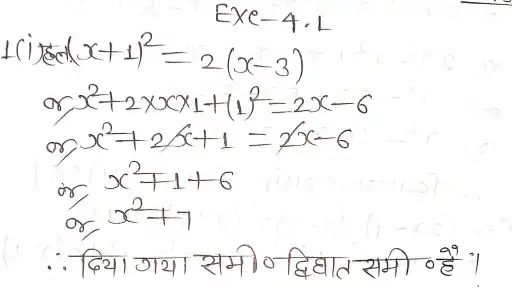 Exe-4.1
1(i) हल (x+1)² = 2(x-3)
or, x²+2×x×1+(1)² = 2x-6
or, x²+2x+1 = 2x-6
or, x²+1+6
or, x²+7
∴ दिया गया समी० द्विघात समी० है।